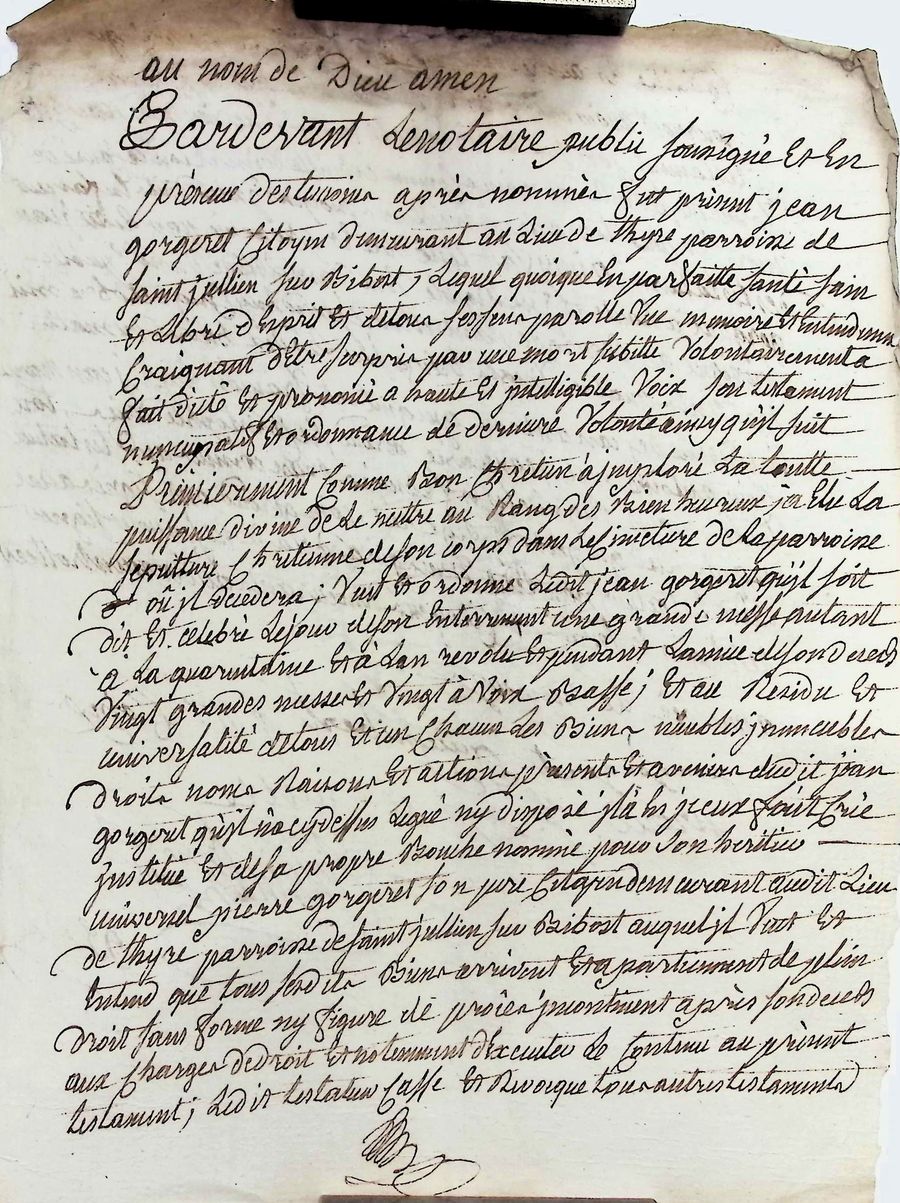 au nom de Dieu amen
Pardevant Lenotaire public sousigné Et En
présence des temoins après nommés fut présent jean
gorgeret Citoyen demeurant au Lieu de thyre parroisse de
saint jullien sur Bibost, Lequel quoique En parfaitte santé sain
Et Libre d'Esprit Et detous ses sens parolle Vue memoire Et Entendement
Craignant d'Etre surpris par une mort subitte Volontairement a
fait dicté Et prononcé a haute Et intelligible Voix son testament
nuncupatif Et ordonnance de derniere Volonté ainsy qu'jl suit
Premierement Comme Bon Chretien a jmploré La toutte
puissance divine de Le mettre au Rang des Bien heureux ja Elû La
sepulture Chretienne deson corps dans Le Cimetiere de la parroisse
où jl decedera; Veut Et ordonne Ledit jean gorgeret qu'jl soit
dit Et celebré Lejour deson Enterrement une grande messe autant
à La quarantaine Et à Lan revolu Et pendant Lannée deson deces
Vingt grandes messes Et Vingt à Voix Basse; Et au Residu Et
universalité detous Et un Chacun Les Biens meubles jmmeubles
droits noms Raisons Et actions présents Et avenirs dudit jean
gorgeret qu'jl n'a cy dessus Legué ny disposé jl à hijceux fait Crée
Institué Et desa propre Bouche nommé pour son heritier
universel pierre gorgeret son pere Citoyen demeurant audit Lieu
de thyre parroisse de saint jullien sur Bibost auquel jl Veut Et
Entend que tous sesdits Biens arrivent Et apartiennent de plein
droit sans forme ny figure de procès jmontinent après son deces
aux Charges de droit Et notemment d'Executer Le Contenu au présent
testament; Ledit testateur Casse Et Revocque tous autres testaments